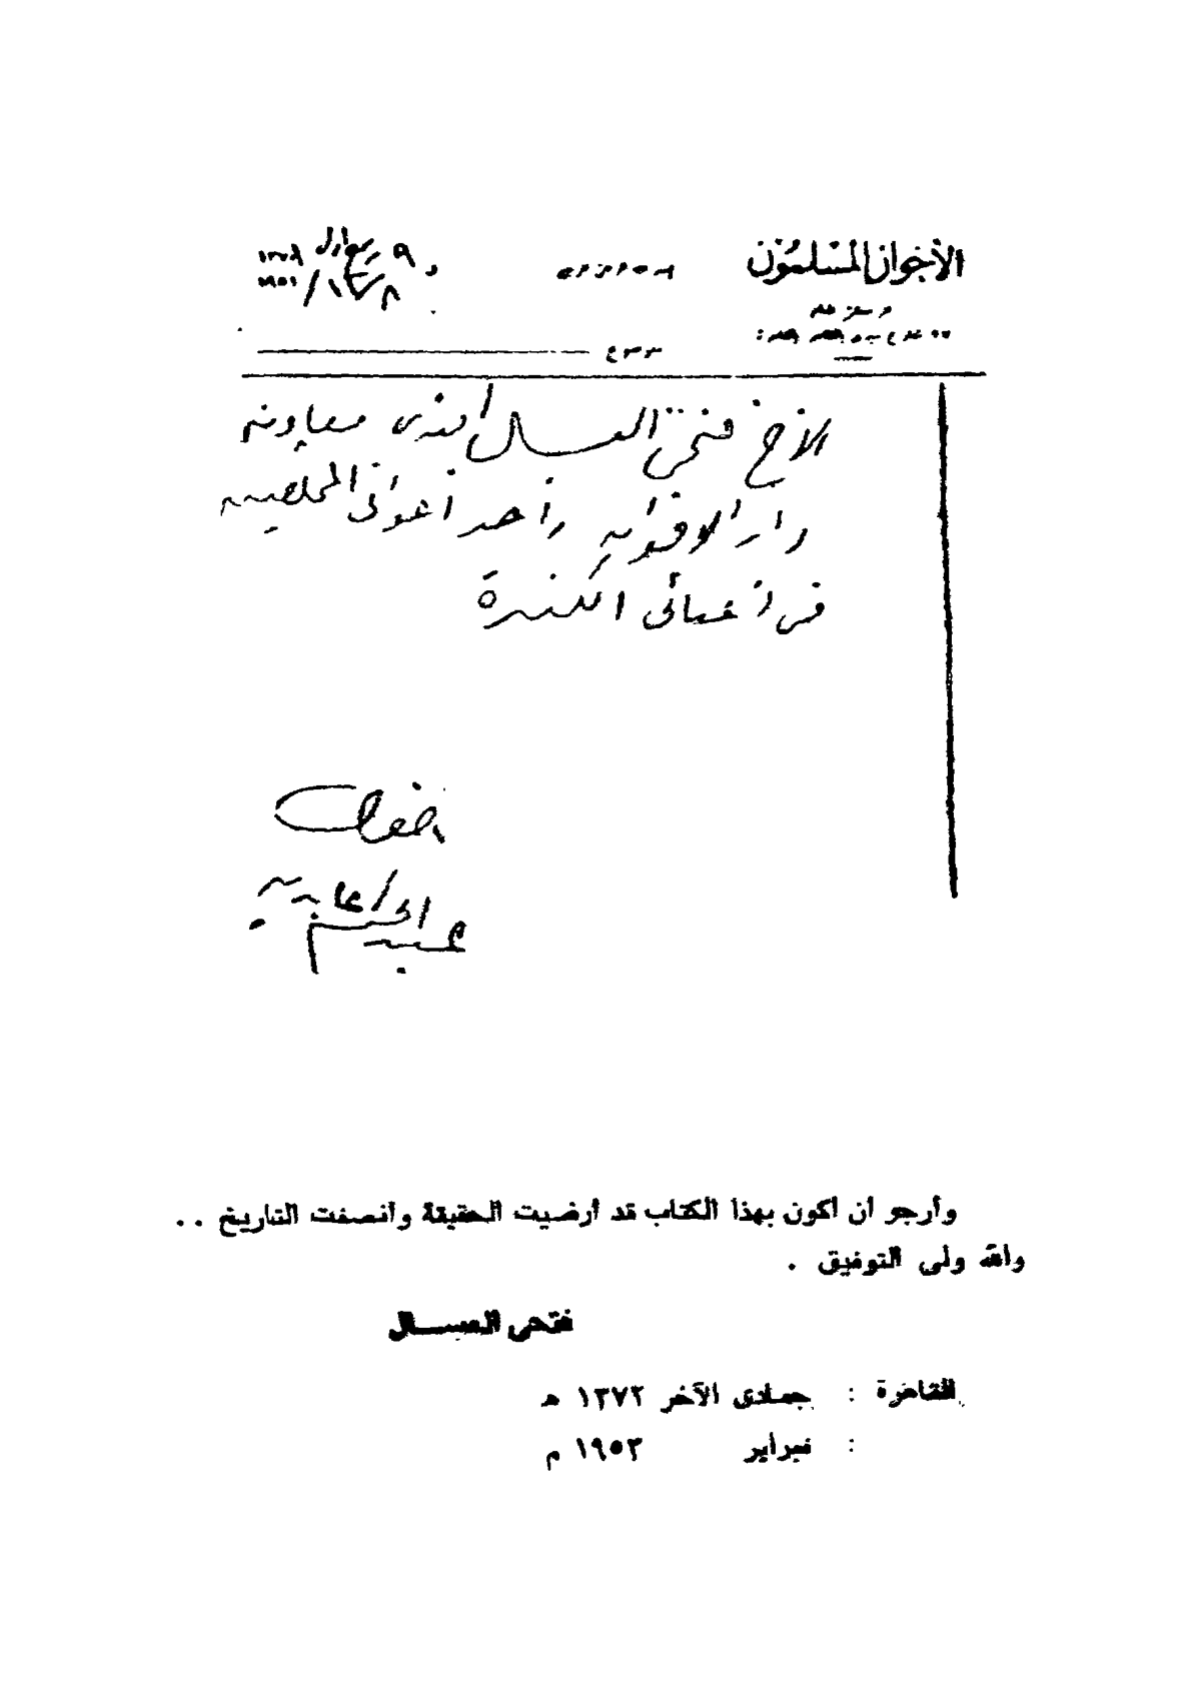 الإخوان المسلمون
٩ ربيع أول
٨/١٢/
الأخ فتحى العسال أفندى معاون
دار الإخوان وأحد أعوانى المخلصين
فى أعبائى الكثيرة
أخوك
عبد الحكيم عابدين
وأرجو أن أكون بهذا الكتاب قد أرضيت الحقيقة وأنصفت التاريخ ..
والله ولى التوفيق .
فتحى العسـال
القاهرة : جمادى الآخر ١٣٧٢ هـ
: فبراير ١٩٥٣ م